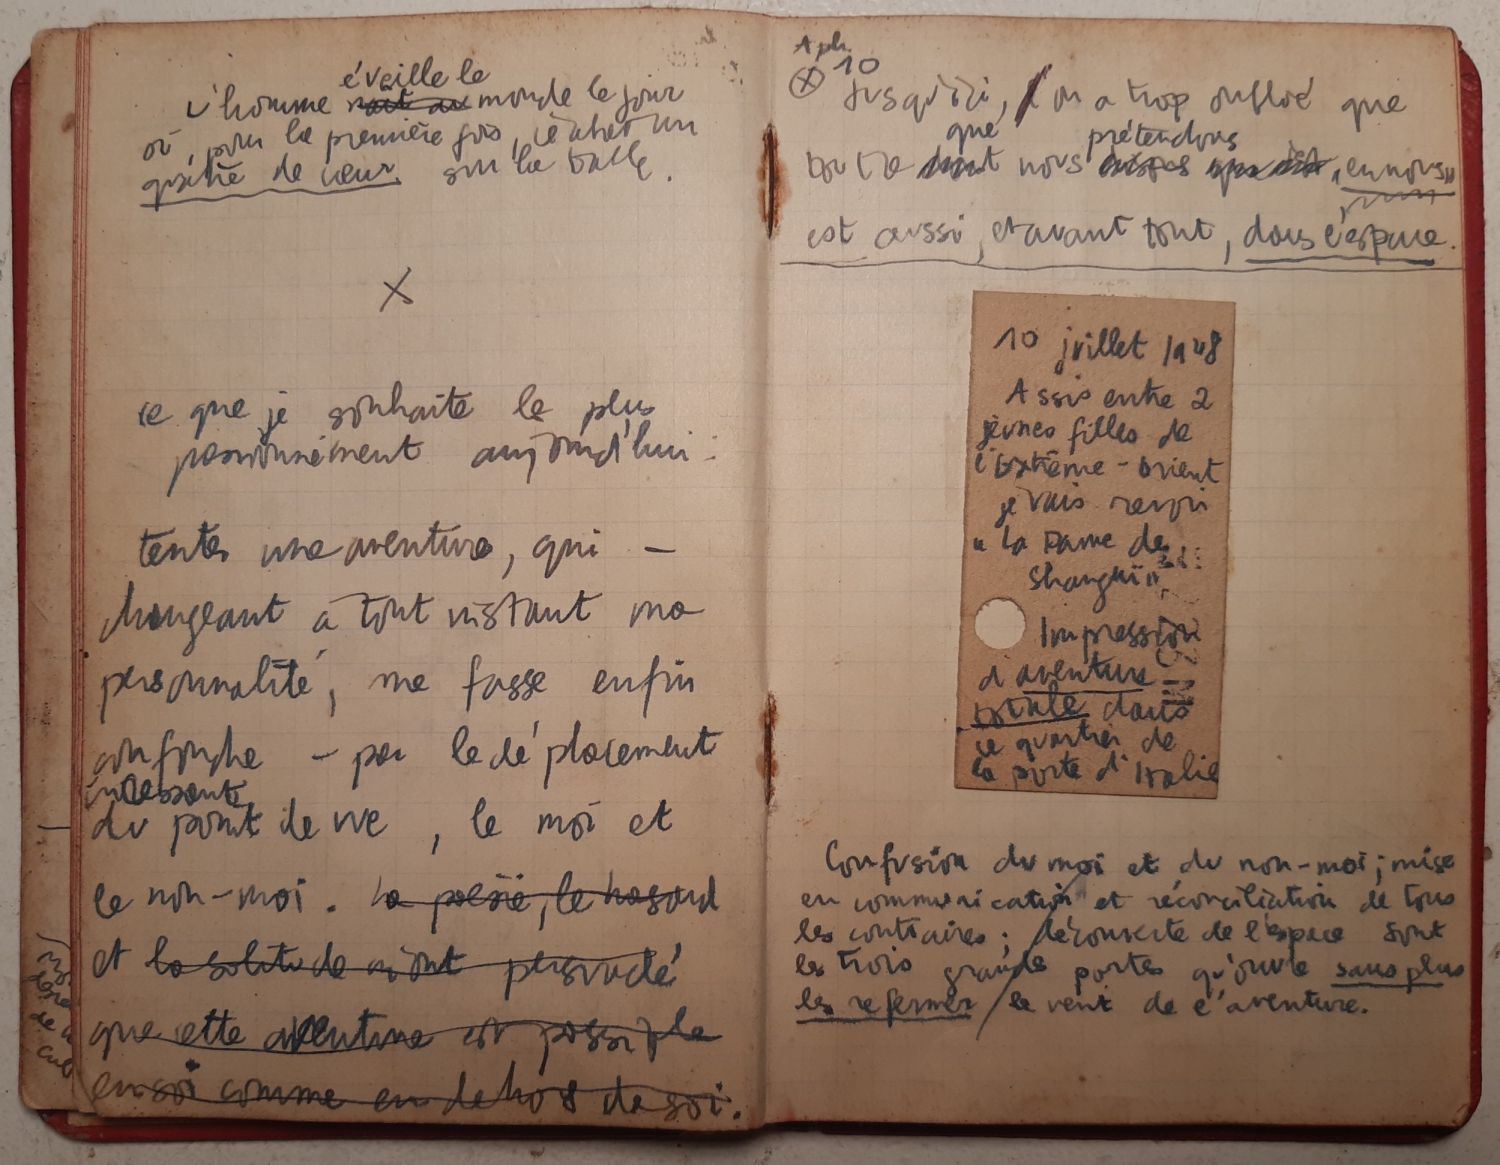 éveille le
L'homme naît au monde le jour
où, pour la première fois, il abat un
quatre de cœur sur la table.
X
Ce que je souhaite le plus
passionnément aujourd'hui :
tenter une aventure, qui –
changeant à tout instant ma
personnalité, me fasse enfin
confondre – par le déplacement
incessant
du point de vue, le moi et
le non-moi. La poésie, le hasard
et la solitude m'ont persuadé
que cette aventure est possible
en soi comme en dehors de soi.
Aph. 10
Jusqu'ici, l'on a trop oublié que
que prétendons
tout ce dont nous "en nous"
est aussi, et avant tout, dans l'espace.
10 juillet 1948
Assis entre 2
jeunes filles de
l'Extrême-Orient
je vais revoir
"La Dame de
Shanghaï"
Impression
d'aventure
totale dans
ce quartier de
la porte d'Italie
Confusion du moi et du non-moi ; mise
en communication et réconciliation de tous
les contraires ; découverte de l'espace sont
les trois grandes portes qu'ouvre sans plus
les refermer le vent de l'aventure.